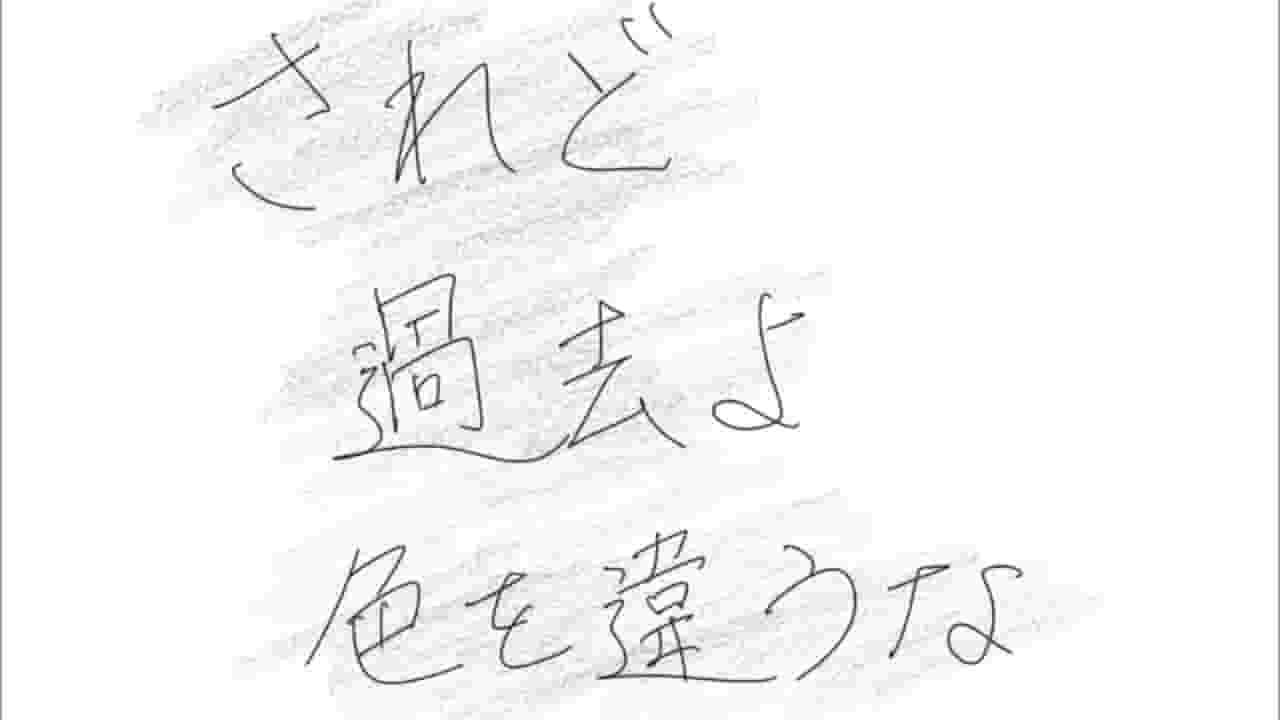 されど
過去よ
色を違うな